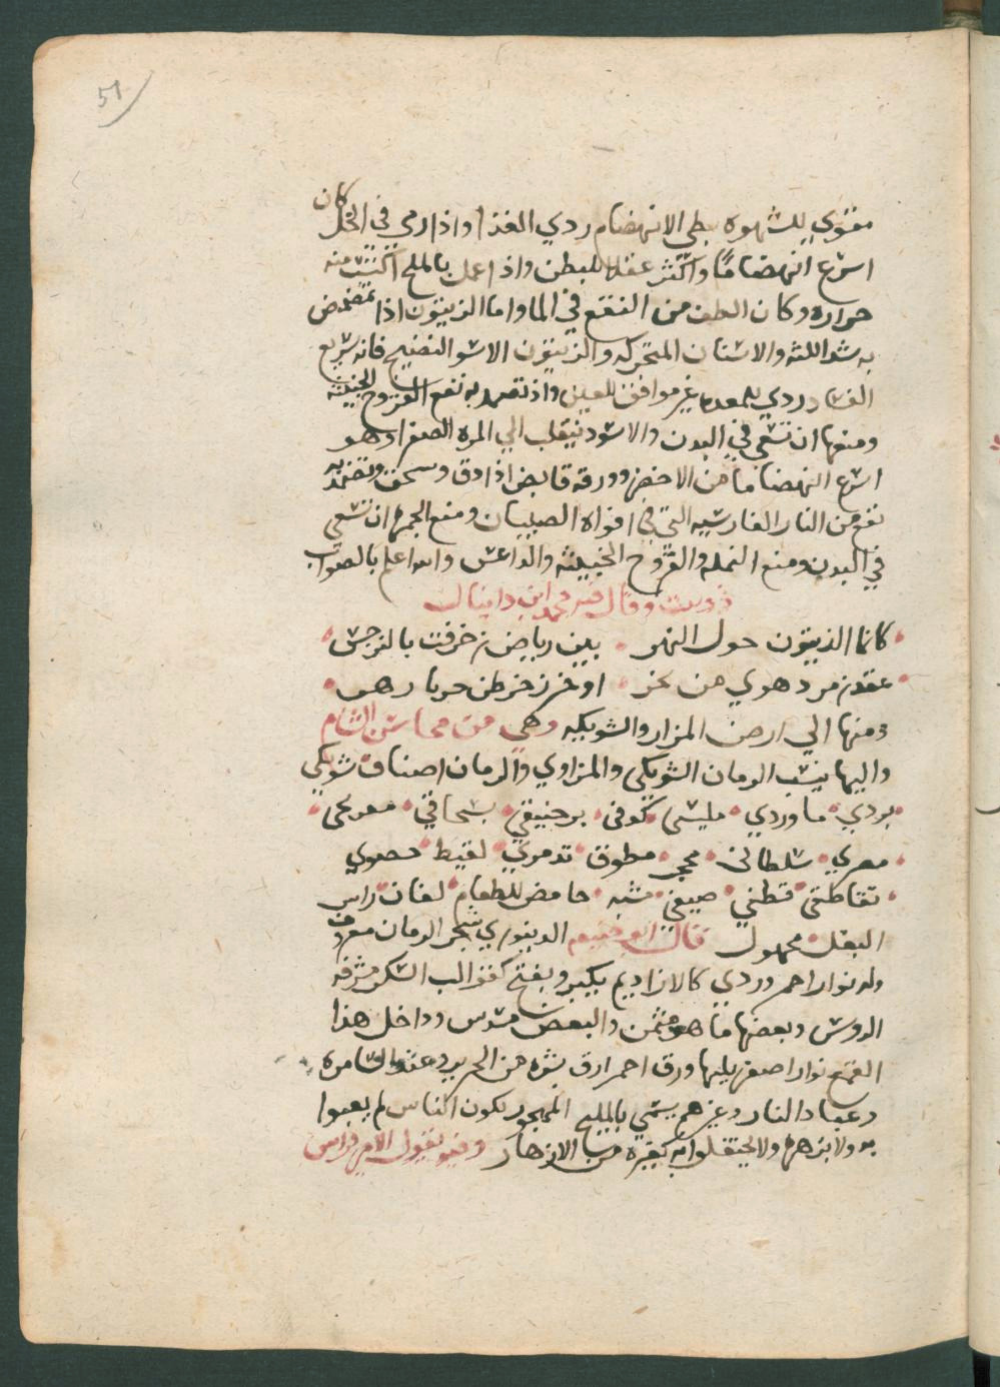 51
مقوي للشهوه بطي الانهضام ردي الغذا واذا رمي في الخل كان
اسرع انهضاما واكثر عقلا للبطن واذا عمل بالملح اكتسب منه
حراره وكان الطف من النقع في الما واما الزيتون اذا تمضمض
به شد اللثه والاسنان المتحركه والزيتون الاسود النضيج فانه سريع
الفساد ردي للمعده غير موافق للعين واذا تضمد به نفع القروح الخبيثه
ومنعها ان تسعي في البدن والاسود ينقلب الي المره الصفرا وهو
اسرع انهضاما من الاخضر وورقه قابض اذا دق وسحق وتضمد به
نفع من النار الفارسيه التي في افواه الصبيان ومنع الجمره ان تسعي
في البدن ومنع النمله والقروح الخبيثه والداعس والله اعلم بالصواب
وقال فيه محمد ابن دانيال
كانما الزيتون حول النهر بين رياض زخرفت بالنرجس
عقد زمرد هوي من نحر او خرز خرطن
ومنها الي ارض المزار والشويكه وهي من محاسن الشام
واليها ينسب الرمان الشويكي والمزاوي والرمان اصناف شويكي
بردي ماوردي مليسي كوفي برجنيقي
مصري سلطاني مطوق تدمري لقيط حصوي
قطني صيفي حامض للطعام لفان راس
البغل مجهول قال ابو حنيفه الدينوري شجر الرمان معروف
وله نوار احمر وردي كالازادي يكبر ويفتح كقوالب السكر مشرفه
الروس وبعضها ما هو مثمن والبعض مسدس وداخل هذا
القمع نوار اصفر يليها ورق احمر ارق بشره من الحرير وعند السامره
وعباد النار وغيرهم يسمي بالمليح المهجور لكون الناس لم يعبوا
به ولا بزهره ولا يحتفلوا به كغيره من سائر الازهار وفيه يقول الامير فراس